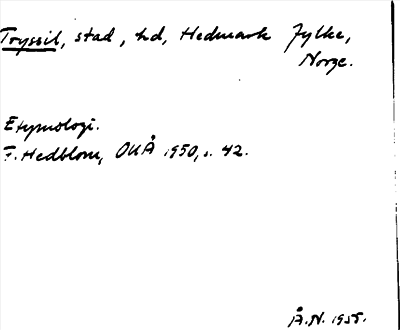 Tryssil, stad, hd, Hedmark Fylke,
Norge.
Etymologi.
F. Hedblom, OUÅ 1950, s. 42.
Å.N. 1955.